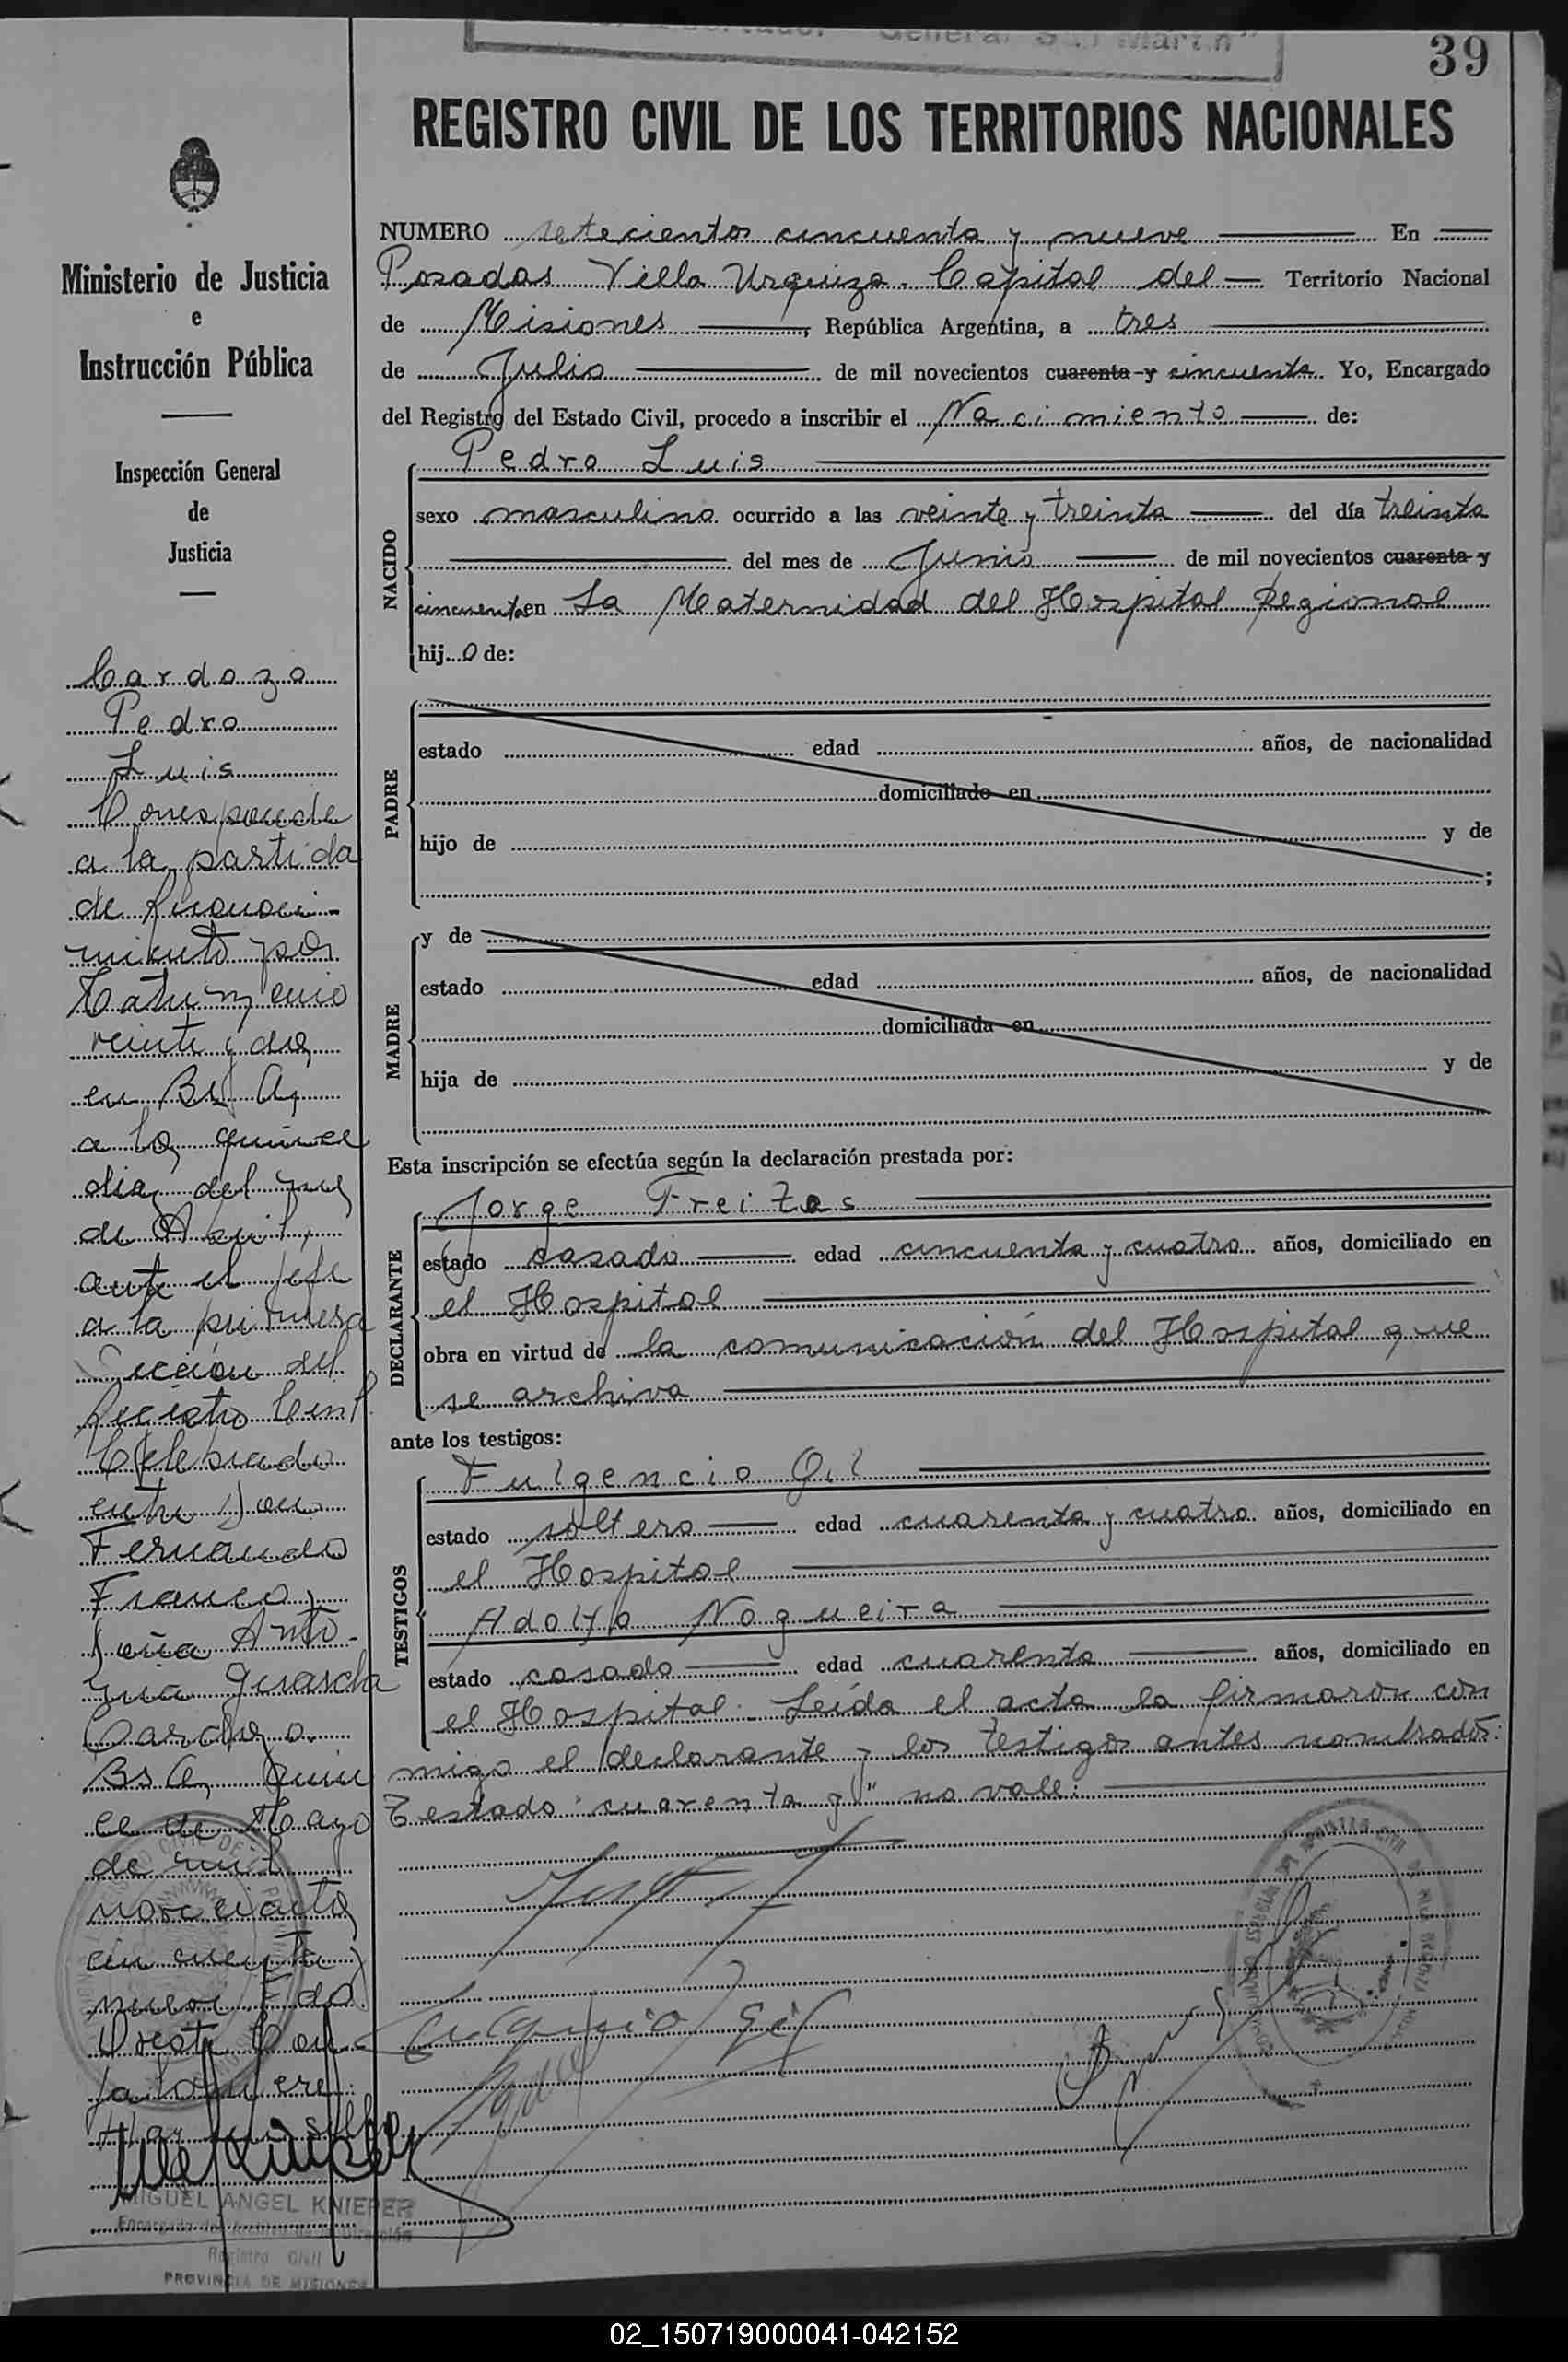 General San Martín"
39
REGISTRO CIVIL DE LOS TERRITORIOS NACIONALES
Ministerio de Justicia
e
Instrucción Pública
Inspección General
de
Justicia
Cardozo
Pedro
Luis
Corresponde
a la partida
de
miento por
veinte y dos
en Bs As
a los quince
dias del mes
de Abril,
ante el jefe
a la primera
Sección del
Registro Civil
Celebrado
entre Don
Fernando
Franco y
Doña Anto-
nia Guascha
Cardozo.
Bs As Quin
ce de Mayo
de mil
novecientos
cincuenta y
nueve Fdo.
MIGUEL ANGEL KNIEPER
Encargado del Archivo de la Dirección
Registro Civil
PROVINCIA DE MISIONES
NUMERO setecientos cincuenta y nueve En
Posadas Villa Urquiza. Capital del Territorio Nacional
de Misiones, República Argentina, a tres
de Julio de mil novecientos cuarenta y cincuenta. Yo, Encargado
del Registro del Estado Civil, procedo a inscribir el Nacimiento de:
NACIDO
Pedro Luis
sexo masculino ocurrido a las veinte y treinta del día treinta
del mes de Junio de mil novecientos cuarenta y
cincuenta en La Maternidad del Hospital Regional
hijo de:
PADRE
estado edad años, de nacionalidad
domiciliado en
hijo de y de
;
MADRE
y de
estado edad años, de nacionalidad
domiciliada en
hija de y de
Esta inscripción se efectúa según la declaración prestada por:
DECLARANTE
Jorge Freitas
estado casado edad cincuenta y cuatro años, domiciliado en
el Hospital
obra en virtud de la comunicación del Hospital que
se archiva
ante los testigos:
TESTIGOS
Fulgencio Gil
estado soltero edad cuarenta y cuatro años, domiciliado en
el Hospital
Adolfo Nogueira
estado casado edad cuarenta años, domiciliado en
el Hospital. Leída el acta la firmaron con
migo el declarante y los testigos antes nombrados:
Testado "cuarenta y" no vale:
Fulgencio Gil
02_150719000041-042152